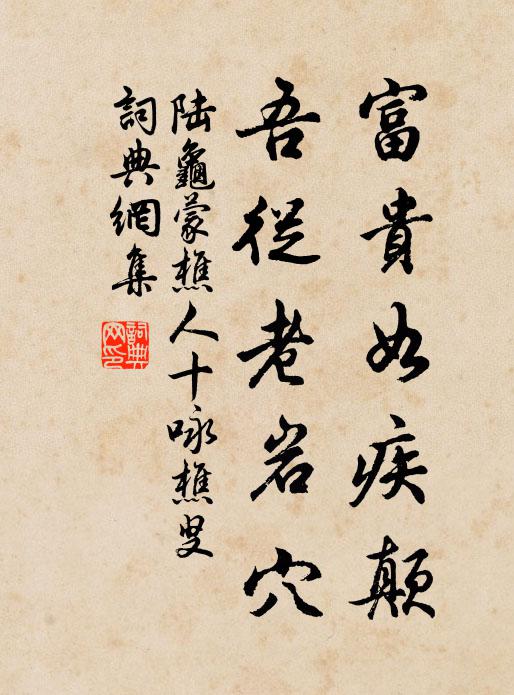 富貴如疾顛
吾從老岩穴
陆龜蒙樵人十咏樵叟
詞典網集
詞典网印